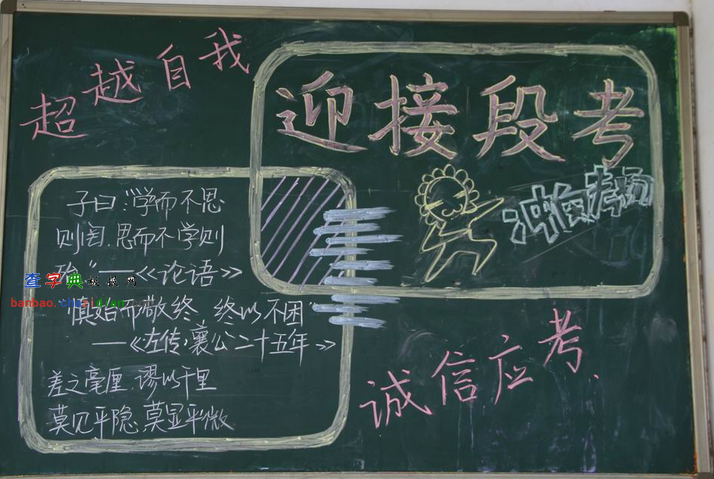 超越自我
迎接段考
冲向考场
子曰:“学而不思
则罔.思而不学则
殆”——《论语》
慎始而敬终 终以不困”
——《左传·襄公二十五年》
差之毫厘.谬以千里
莫见乎隐.莫显乎微
诚信应考.
查字典板报网
banbao.chazidian